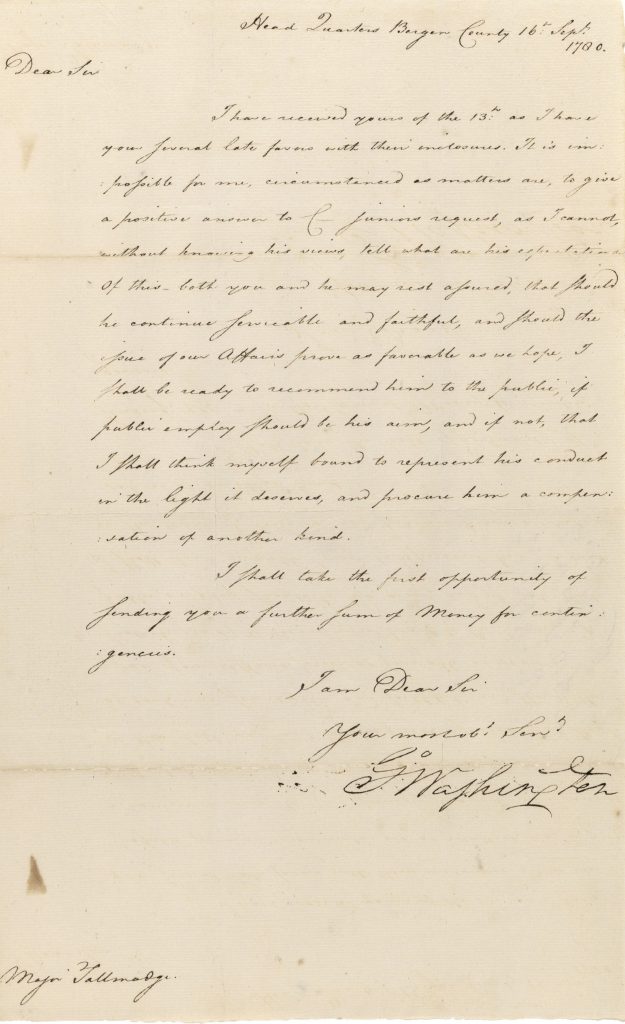 Head Quarters Bergen County 16th. Sept.
1780.
Dear Sir
I have received yours of the 13th. as I have
your several late favors with their enclosures. It is im:
:possible for me, circumstanced as matters are, to give
a positive answer to C—— juniors request, as I cannot,
without knowing his views, tell what are his expectations
Of this both you and he may rest assured, that should
he continue serviceable and faithful, and should the
issue of our Affairs prove as favorable as we hope, I
shall be ready to recommend him to the public, if
public employ should be his aim, and if not, that
I shall think myself bound to represent his conduct
in the light it deserves, and procure him a compen:
:sation of another kind.
I shall take the first opportunity of
sending you a further sum of Money for contin:
:gencies.
I am Dear Sir
Your most obt. Servt.
Go. Washington
Major Tallmadge.